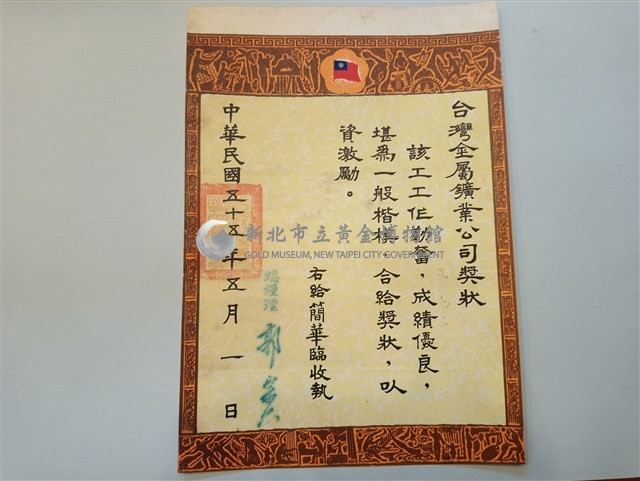 台灣金屬鑛業公司獎狀
該工工作勤奮，成績優良，
堪為一般楷模，合給獎狀，以
資激勵。
右給簡華臨收執
總經理
中華民國五十五年五月一日
新北市立黃金博物館
GOLD MUSEUM, NEW TAIPEI CITY GOVERNMENT